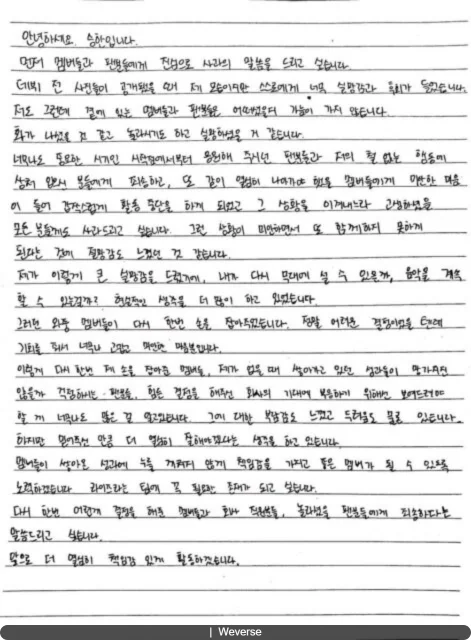 안녕하세요. 승한입니다.
먼저 멤버들과 팬분들에게 진심으로 사과의 말씀을 드리고 싶습니다.
데뷔 전 사진들이 공개됐을 때 제 모습이지만 스스로에게 너무 실망감과 후회가 들었습니다.
저도 그런데 곁에 있는 멤버들과 팬분들은 어떠셨을지 가늠이 가지 않습니다.
화가 나셨을 것 같고 놀라시기도 하고 실망하셨을 거 같습니다.
너무나도 중요한 시기인 시작점에서부터 응원해 주시던 팬분들과 저의 철 없는 행동에
상처 입으신 분들에게 죄송하고, 또 같이 열심히 나아가야 했을 멤버들에게 미안한 마음
이 들어 갑작스럽게 활동 중단을 하게 되었고 그 상황을 이겨내느라 고생하셨을
모든 분들께도 사과드리고 싶습니다. 그런 상황이 미안하면서 또 함께하지 못하게
된다는 것에 절망감도 느꼈던 것 같습니다.
제가 이렇게 큰 실망감을 드렸기에, 내가 다시 무대에 설 수 있을까, 음악을 계속
할 수 있을까라고 현실적인 생각을 더 많이 하고 있었습니다.
그러던 와중 멤버들이 다시 한번 손을 잡아주었습니다. 정말 어려운 결정이었을 텐데
기회를 줘서 너무나 고맙고 미안한 마음뿐입니다.
이렇게 다시 한번 제 손을 잡아준 멤버들, 제가 없을 때 쌓아가고 있던 성과들이 망가지진
않을까 걱정하시는 팬분들, 힘든 결정을 해주신 회사의 기대에 부응하기 위해선 보여드려야
할 게 너무나도 많은 걸 알고있습니다. 그에 대한 부담감도 느끼고 두려움도 물론 있습니다.
하지만 믿어주신 만큼 더 열심히 잘해야겠다는 생각을 하고 있습니다.
멤버들이 쌓아온 성과에 누를 끼치지 않게 책임감을 가지고 좋은 멤버가 될 수 있도록
노력하겠습니다 라이즈라는 팀에 꼭 필요한 존재가 되고 싶습니다.
다시 한번 어렵게 결정을 해준 멤버들과 회사 직원분들, 놀라셨을 팬분들에게 죄송하다는
말씀드리고 싶습니다.
앞으로 더 열심히 책임감 있게 활동하겠습니다.
| Weverse